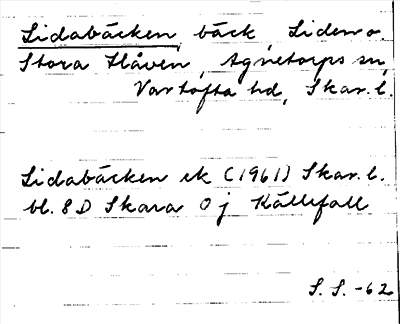 Lidabäcken, bäck, Liden o.
Stora Slåven, Agnetorps sn,
Vartofta hd, Skar. l.
Lidabäcken ek (1961) Skar. l.
bl. 8 D Skara 0 j Källefall
S. S. -62